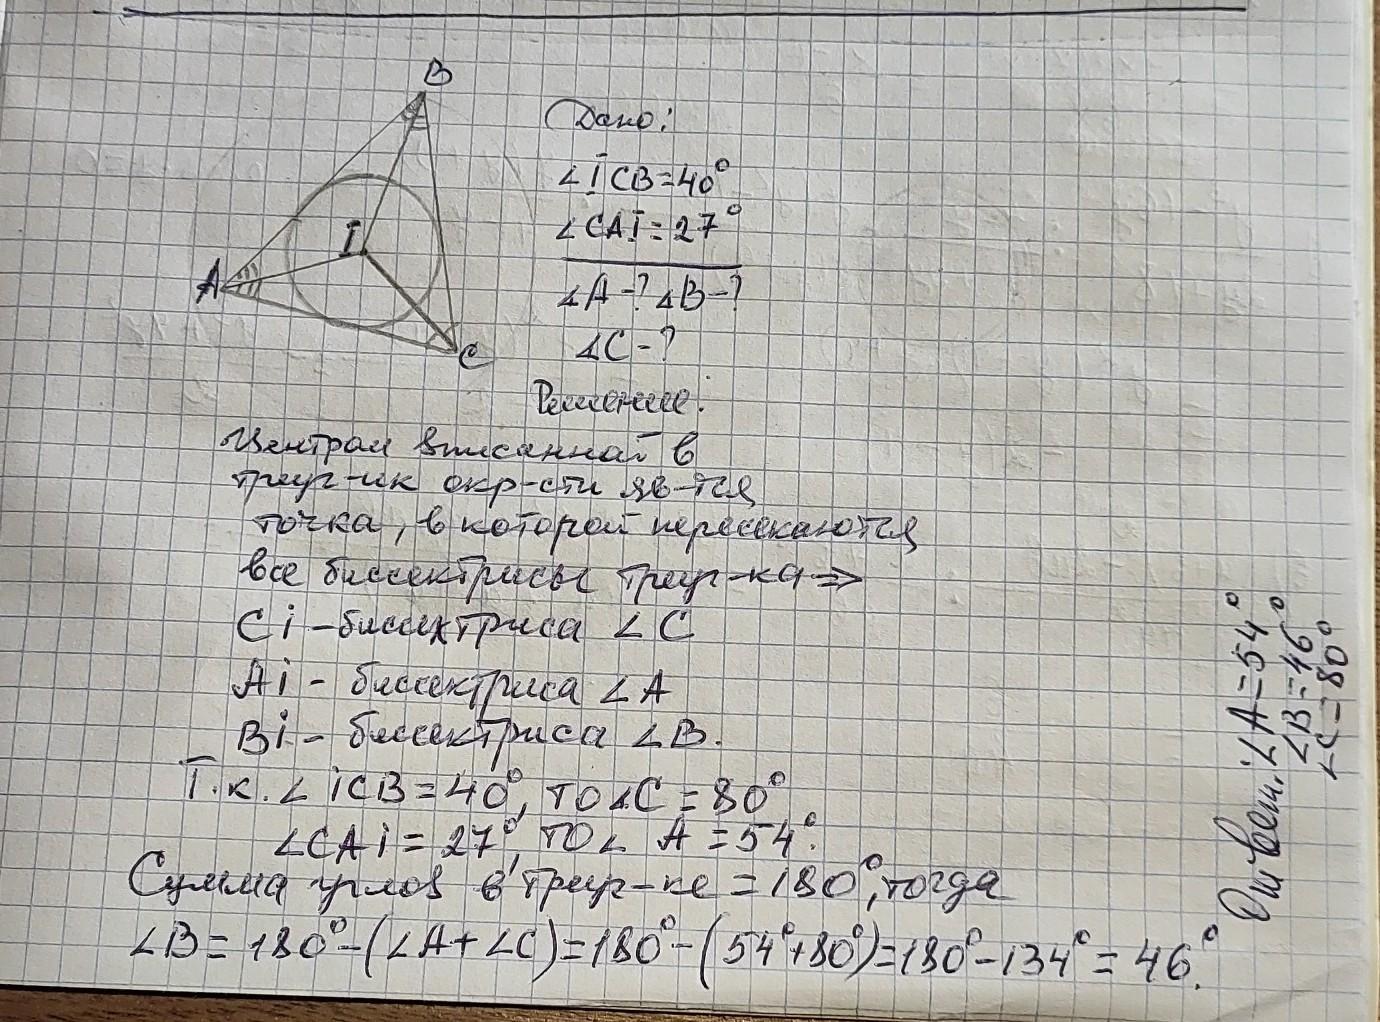 B
I
A
C
Дано:
∠ICB=40°
∠CAI=27°
∠A-? ∠B-?
∠C-?
Решение.
Центром вписанной в
треуг-ик окр-сти яв-тся
точка, в которой пересекаются
все биссектрисы треуг-ка ⇒
Ci - биссектриса ∠C
Ai - биссектриса ∠A
Bi - биссектриса ∠B.
Т.к. ∠iCB=40°, то ∠C=80°
∠CAi=27°, то ∠A=54°.
Сумма углов в треуг-ке =180°, тогда
∠B=180°-(∠A+∠C)=180°-(54°+80°)=180°-134°=46°.
Ответ: ∠A=54°
∠B=46°
∠C=80°